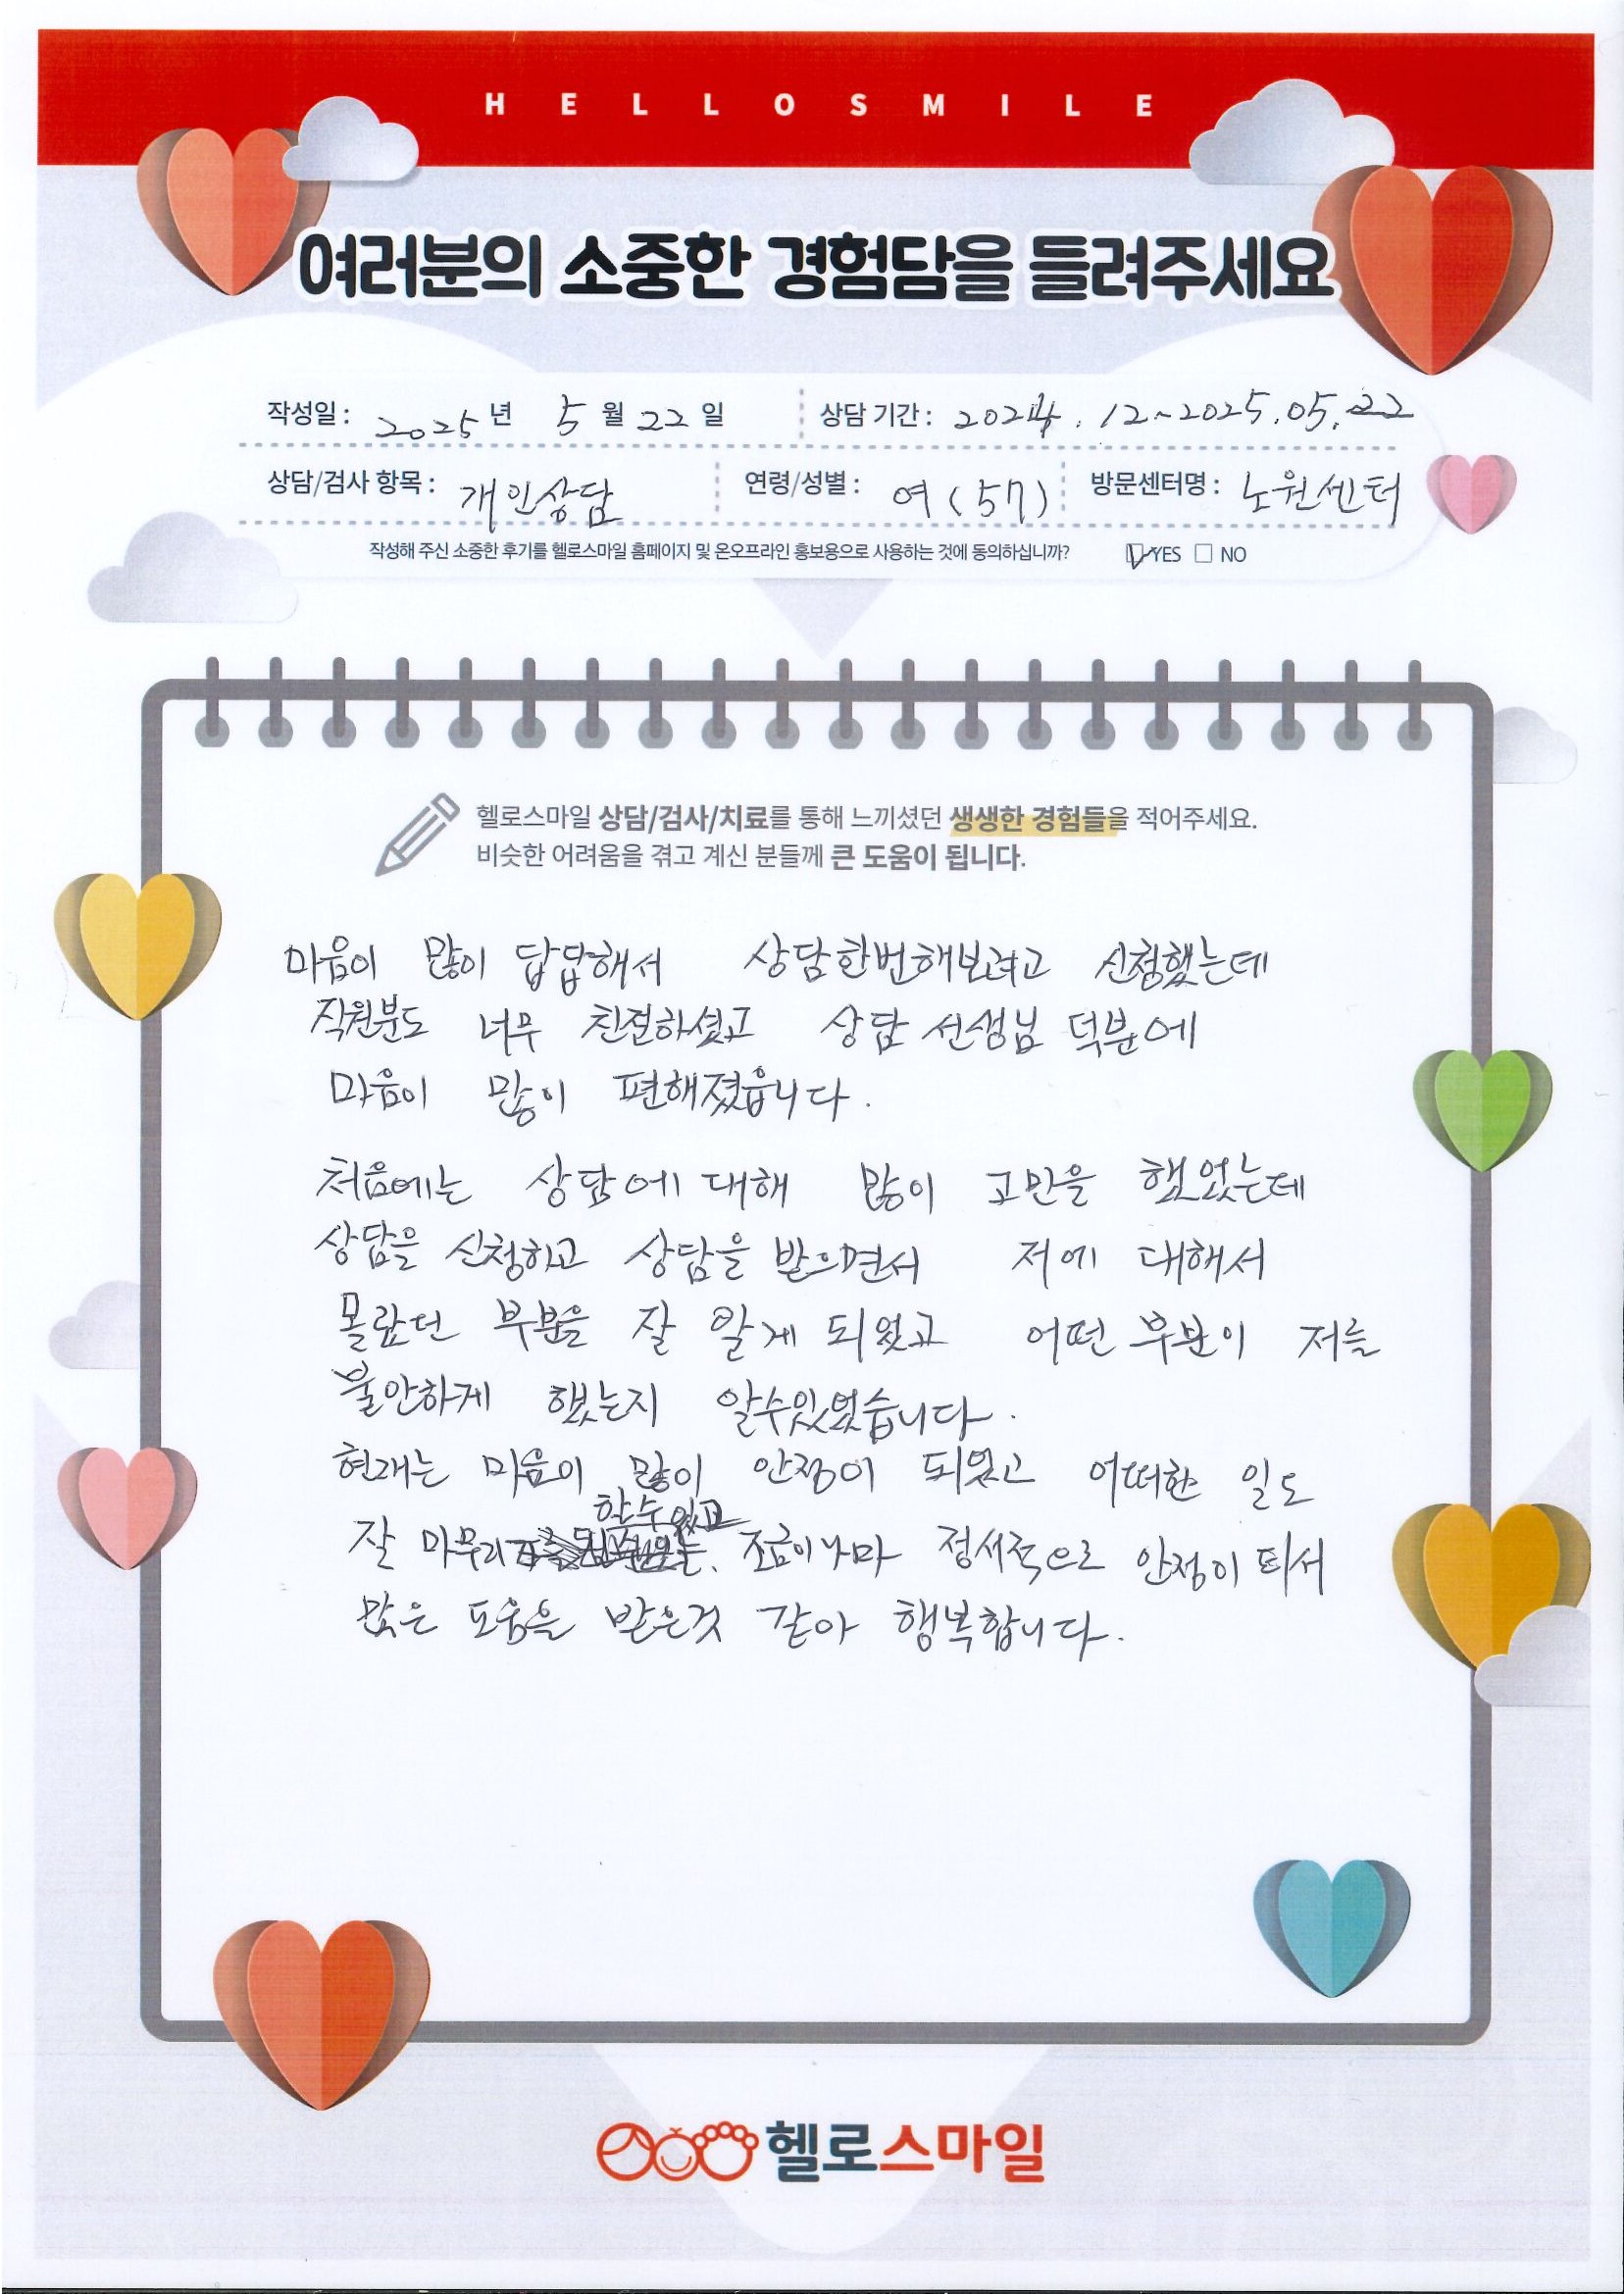 HELLOSMILE
여러분의 소중한 경험담을 들려주세요
작성일 : 2025 년 5 월 22 일 상담 기간 : 2024.12~2025.05.22
상담/검사 항목 : 개인상담 연령/성별 : 여 (57) 방문센터명 : 노원센터
작성해 주신 소중한 후기를 헬로스마일 홈페이지 및 온오프라인 홍보용으로 사용하는 것에 동의하십니까? YES NO
헬로스마일 상담/검사/치료를 통해 느끼셨던 생생한 경험들을 적어주세요.
비슷한 어려움을 겪고 계신 분들께 큰 도움이 됩니다.
마음이 많이 답답해서 상담한번해보려고 신청했는데
직원분도 너무 친절하셨고 상담 선생님 덕분에
마음이 많이 편해졌읍니다.
처음에는 상담에 대해 많이 고민을 했었는데
상담을 신청하고 상담을 받으면서 저에 대해서
몰랐던 부분을 잘 알게 되었고 어떤 부분이 저를
불안하게 했는지 알수있었습니다.
현재는 마음이 많이 안정이 되었고 어떠한 일도
할수있고
잘 마무리 조금이나마 정서적으로 안정이 되서
많은 도움을 받은것 같아 행복합니다.
헬로스마일